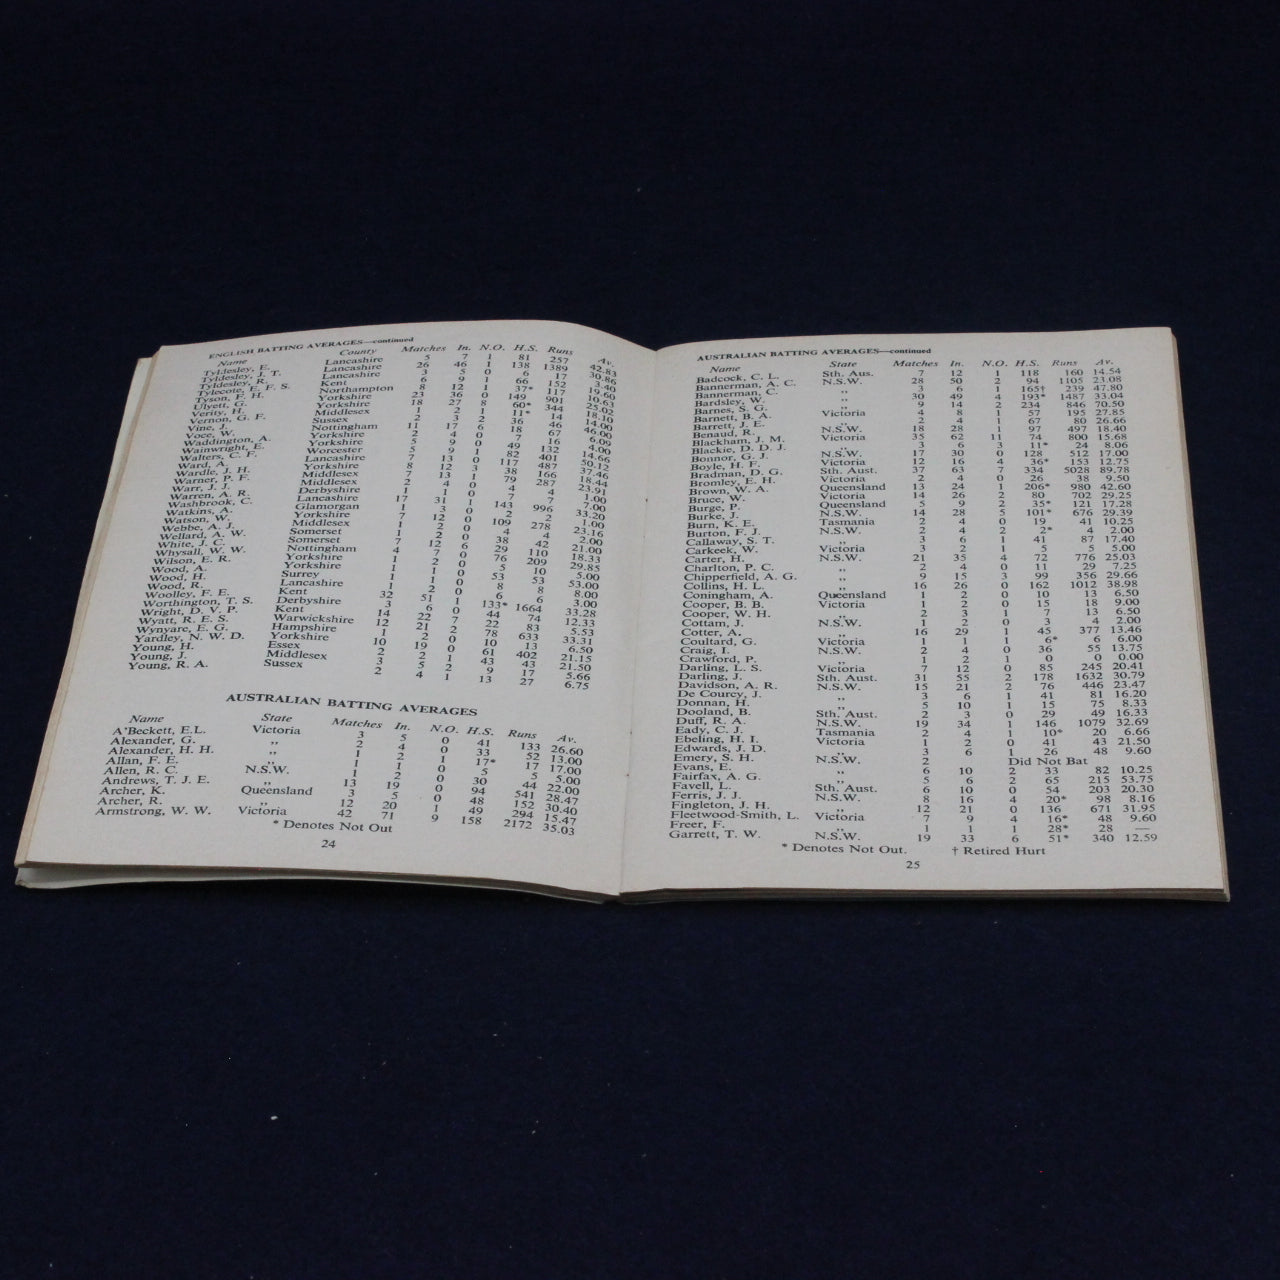 ENGLISH BATTING AVERAGES—continued
Name County Matches In. N.O. H.S. Runs Av.
Tyldesley, E. Lancashire 5 7 1 81 257 42.83
Tyldesley, J. T. Lancashire 26 46 1 138 1389 30.86
Tyldesley, R. Lancashire 3 5 0 6 17 3.40
Tylecote, E. F. S. Kent 6 9 1 66 152
Tyson, F. H. Northampton 8 12 1 37* 117 10.63
Ulyett, G. Yorkshire 23 36 0 149 901 25.02
Verity, H. Yorkshire 18 27 8 60* 344 18.10
Vernon, G. F. Middlesex 1 2 1 11* 14 14.00
Vine, J. Sussex 2 3 2 36 46 46.00
Voce, W. Nottingham 11 17 6 18 6.09
Waddington, A. Yorkshire 2 4 0 7 16 4.00
Wainwright, E. Yorkshire 5 9 0 49 132 14.66
Walters, C. F. Worcester 5 9 1 82 401 50.12
Ward, A. Lancashire 7 13 0 117 487 37.46
Wardle, J. H. Yorkshire 8 12 3 38 166 18.44
Warner, P. F. Middlesex 7 13 1 79 287 23.91
Warr, J. J. Middlesex 2 4 0 4 4 1.00
Warren, A. R. Derbyshire 1 1 0 7 7 7.00
Washbrook, C. Lancashire 17 31 1 143 996 33.20
Watkins, A. Glamorgan 1 0 2 2 1.00
Watson, W. Yorkshire 7 12 0 109 278 23.16
Webbe, A. J. Middlesex 1 2 0 4 4 2.00
Wellard, A. W. Somerset 1 2 0 38 42 21.00
White, J. C. Somerset 7 12 6 29 110 18.33
Whysall, W. W. Nottingham 4 7 0 76 209 29.85
Wilson, E. R. Yorkshire 1 2 0 5 10 5.00
Wood, A. Yorkshire 1 1 0 53 53 53.00
Wood, H. Surrey 1 1 0 8 8 8.00
Wood, R. Lancashire 1 2 0 6 6 3.00
Woolley, F. E. Kent 32 51 1 133* 1664 33.28
Worthington, T. S. Derbyshire 3 6 0 44 74 12.33
Wright, D. V. P. Kent 14 22 7 83 5.53
Wyatt, R. E. S. Warwickshire 12 21 2 78 633 33.31
Wynyare, E. G. Hampshire 1 2 0 10 13 6.50
Yardley, N. W. D. Yorkshire 10 19 0 61 402 21.15
Young, H. Essex 2 2 43 43 21.50
Young, J. Middlesex 3 5 2 9 17 5.66
Young, R. A. Sussex 2 4 13 27 6.75
AUSTRALIAN BATTING AVERAGES
Name State Matches In. N.O. H.S. Runs Av.
A'Beckett, E.L. Victoria 3 5 0 41 133 26.60
Alexander, G. ,, 2 4 0 33 52 13.00
Alexander, H. H. ,, 1 2 1 17* 17 17.00
Allan, F. E. ,, 1 1 0 5 5 5.00
Allen, R. C. N.S.W. 1 2 0 30 44 22.00
Andrews, T. J. E. ,, 13 19 0 94 541 28.47
Archer, K. Queensland 3 5 0 48 152 30.40
Archer, R. ,, 12 20 1 49 294 15.47
Armstrong, W. W. Victoria 42 71 9 158 2172 35.03
* Denotes Not Out
24
AUSTRALIAN BATTING AVERAGES—continued
Name State Matches In. N.O. H.S. Runs Av.
Badcock, C. L. Sth. Aus. 7 12 1 118 160 14.54
Bannerman, A. C. N.S.W. 28 50 2 94 1105 23.08
Bannerman, C. ,, 3 6 1 165† 239 47.80
Bardsley, W. ,, 30 49 4 193* 1487 33.04
Barnes, S. G. ,, 9 14 2 234 846 70.50
Barnett, B. A. Victoria 4 8 1 57 195 27.85
Barrett, J. E. ,, 2 4 1 67 80 26.66
Benaud, R. N.S.W. 18 28 1 97 497 18.40
Blackham, J. M. Victoria 35 62 11 74 800 15.68
Blackie, D. D. J. ,, 3 6 3 11* 24 8.06
Bonnor, G. J. N.S.W. 17 30 0 128 512 17.00
Boyle, H. F. Victoria 12 16 4 36* 153 12.75
Bradman, D. G. Sth. Aust. 37 63 7 334 5028 89.78
Bromley, E. H. Victoria 2 4 0 26 38 9.50
Brown, W. A. Queensland 13 24 1 206* 980 42.60
Bruce, W. Victoria 14 26 2 80 702 29.25
Burge, P. Queensland 5 9 2 35* 121 17.28
Burke, J. N.S.W. 14 28 5 101* 676 29.39
Burn, K. E. Tasmania 2 4 0 19 41 10.25
Burton, F. J. N.S.W. 2 4 2 2* 4 2.00
Callaway, S. T. ,, 3 6 1 41 87 17.40
Carkeek, W. Victoria 3 2 1 5 5 5.00
Carter, H. N.S.W. 21 35 4 72 776 25.03
Charlton, P. C. ,, 2 4 0 11 29 7.25
Chipperfield, A. G. ,, 9 15 3 99 356 29.66
Collins, H. L. ,, 16 26 0 162 1012 38.98
Coningham, A. Queensland 1 2 0 10 13 6.50
Cooper, B. B. Victoria 1 2 0 15 18 9.00
Cooper, W. H. ,, 2 3 1 7 13 6.50
Cottam, J. N.S.W. 1 2 0 3 4 2.00
Cotter, A. ,, 16 29 1 45 377 13.46
Coultard, G. Victoria 1 1 1 6* 6 6.00
Craig, I. N.S.W. 2 4 0 36 55 13.75
Crawford, P. ,, 1 2 1 0 0 0.00
Darling, L. S. Victoria 7 12 0 85 245 20.41
Darling, J. Sth. Aust. 31 55 2 178 1632 30.79
Davidson, A. R. N.S.W. 15 21 2 76 446 23.47
De Courcy, J. ,, 3 6 1 41 81 16.20
Donnan, H. ,, 5 10 1 15 75 8.33
Dooland, B. Sth. Aust. 2 3 0 29 49 16.33
Duff, R. A. N.S.W. 19 34 1 146 1079 32.69
Eady, C. J. Tasmania 2 4 1 10* 20 6.66
Ebeling, H. I. Victoria 1 2 0 41 43 21.50
Edwards, J. D. ,, 3 6 1 26 48 9.60
Emery, S. H. N.S.W. 2 Did Not Bat
Evans, E. ,, 6 10 2 33 82 10.25
Fairfax, A. G. ,, 5 6 2 65 215 53.75
Favell, L. Sth. Aust. 6 10 0 54 203 20.30
Ferris, J. J. N.S.W. 8 16 4 20* 98 8.16
Fingleton, J. H. ,, 12 21 0 136 671 31.95
Fleetwood-Smith, L. Victoria 7 9 4 16* 48 9.60
Freer, F. ,, 1 1 1 28* 28 —
Garrett, T. W. N.S.W. 19 33 6 51* 340 12.59
* Denotes Not Out. † Retired Hurt
25